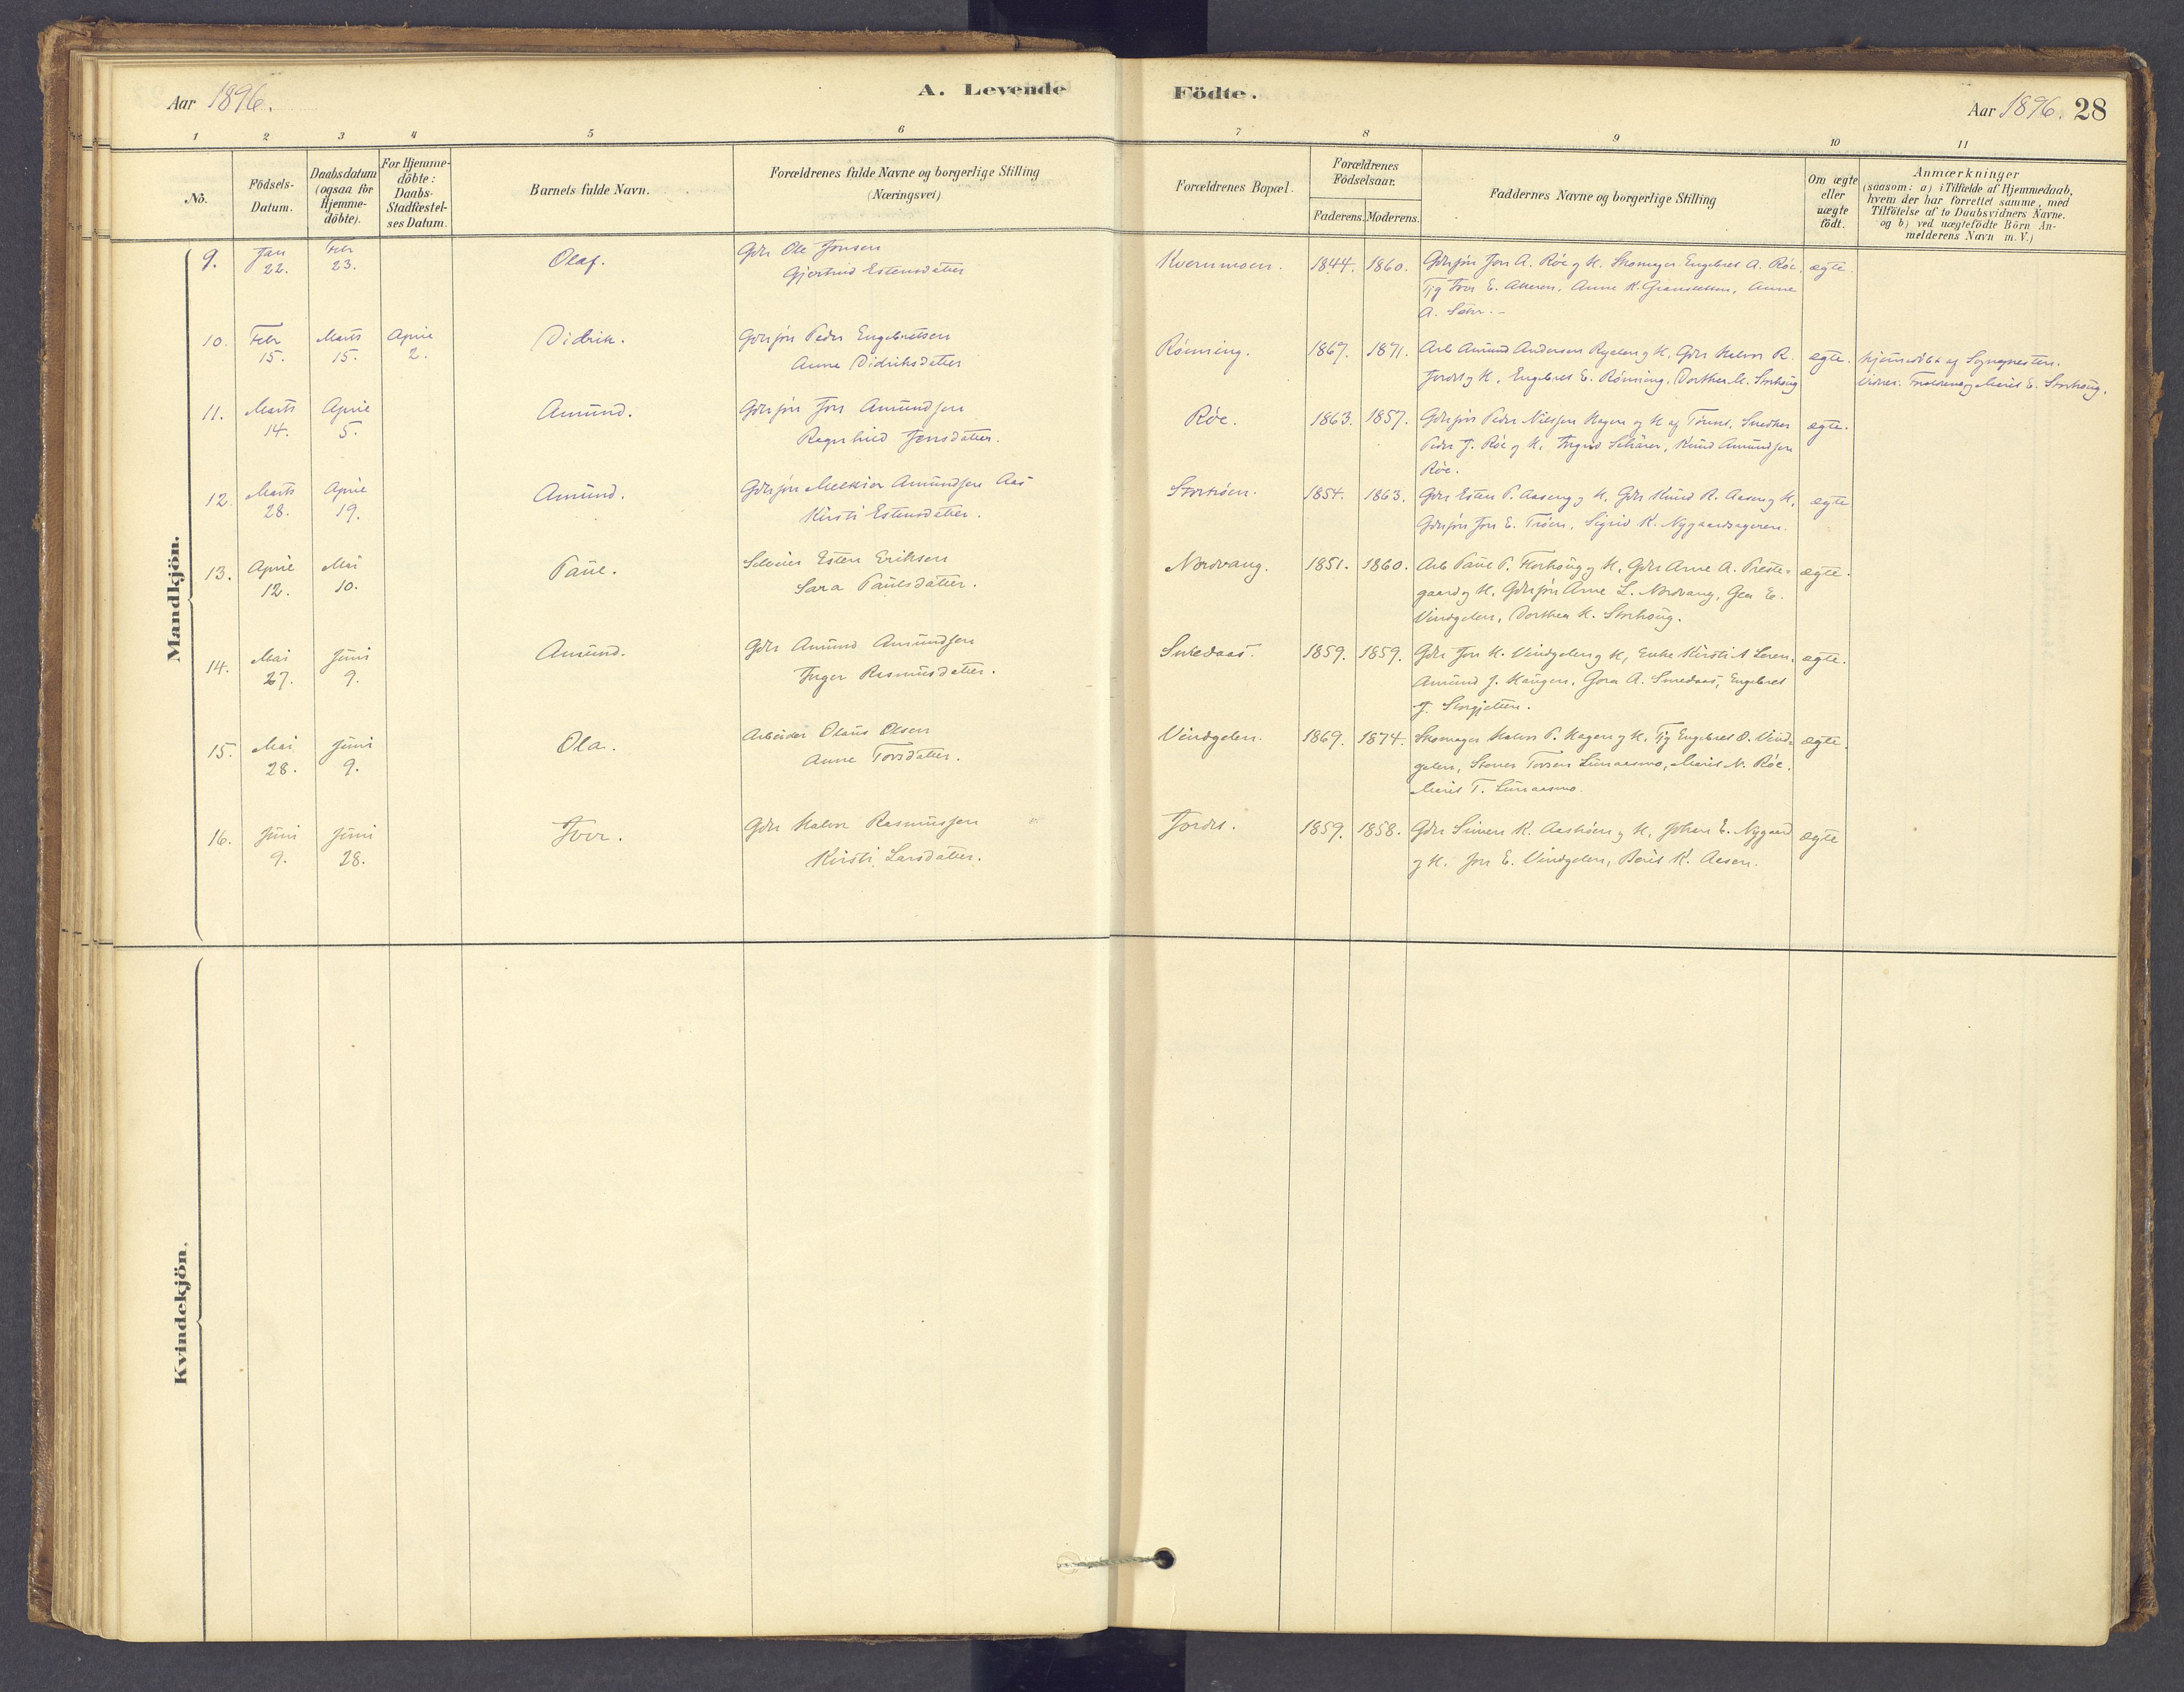 Aar 1896.
A. Levende Födte.
Aar 1896. 28
1 2 3 4 5 6 7 8 9 10 11
No.
Födsels-Datum.
Daabsdatum (ogsaa for Hjemme-döbte).
For Hjemme-döbte: Daabs-Stadfæstel-ses Datum.
Barnets fulde Navn.
Forældrenes fulde Navne og borgerlige Stilling
(Næringsvei)
Forældrenes Bopæl.
Forældrenes Födselsaar.
Faderens. Moderens.
Faddernes Navne og borgerlige Stilling
Om ægte eller uægte födt.
Anmærkninger
(saasom: a) i Tilfælde af Hjemmedaab,
hvem der har forrettet samme, med
Tilföielse af to Daabsvidners Navne.
og b) ved uægtefödte Börn An-
melderens Navn m. V.)
Mandkjön.
9. Jan 22. Febr 23. Olaf. Gdr Ole Jonsen Kvernmoen. 1844. 1860. Gdrsøn Jon A. Røe og K. Skomager Engebret A. Røe, ægte.
Gjertrud Estensdatter Tjg Ivar E. Aaeren, Anne K. Gransletten, Anne
A.
10. Febr 15. Marts 15. April 2. Didrik. Gdrsøn Peder Engebretsen Rønning. 1867. 1871. Arb Amund Andersen og K, Gdr Halvor R. ægte. hjemmedøbt af Sognepresten.
Anne Didriksdatter Jordet og K, Engebret E. Rønning, Dorthea K. Storhaug Vidner: Faderen og Marit E. Storhaug.
11. Marts 14. April 5. Amund. Gdrsøn Jon Amundsen Røe. 1863. 1857. Gdrsøn Peder Nilssen Hagen og K af Tønset, Snedker ægte.
Ragnhild Jensdatter. Peder J. Røe og K, Ingrid Schärer, Knud Amundsen
Røe.
12. Marts 28. April 19. Amund. Gdrsøn Melkior Amundsen Aas Storhøen. 1854. 1863. Gdr Esten P. Aaseng og K, Gdr Knud R. Aasen og K, ægte
Kirsti Estensdatter. Gdrsøn Jon E. Trøen, Sigrid K. Nygaardsageren.
13. April 12. Mai 10. Paul. Selveier Esten Eriksen Nordvang. 1851. 1860. Arb Paul P. Storhaug og K, Gdr Arne A. Preste- ægte.
Sara Paulsdatter. gaard og K, Gdrsøn Arne L. Nordvang, Gea E.
Vindgelen, Dorthea K. Storhaug.
14. Mai 27. Juni 9. Amund. Gdr Amund Amundsen Smedaas. 1859. 1859. Gdr Jon K. Vindgelen og K, Enke Kirsti A ægte.
Inger Rasmusdatter. Amund J. Haugen, Gora A. Smedaas, Engebret
J.
15. Mai 28. Juni 9. Ola. Arbeider Olaus Olsen Vindgelen. 1869. 1874. Skomager Halvor P. Hagen og K. Tjg Engebret O. Vind- ægte.
Anne Torsdatter. gelen, Stener Torsen Lunaasmo, Marit N. Røe,
Marit T. Lunaasmo.
16. Juni 9. Juni 28. Ivar. Gdr Halvor Rasmussen Jordet. 1859. 1858. Gdr Simen K. Aashøen og K, Johan E. Nygaard ægte
Kirsti Larsdatter. og K. Jon E. Vindgelen, Berit K. Aasen.
Kvindekjön.